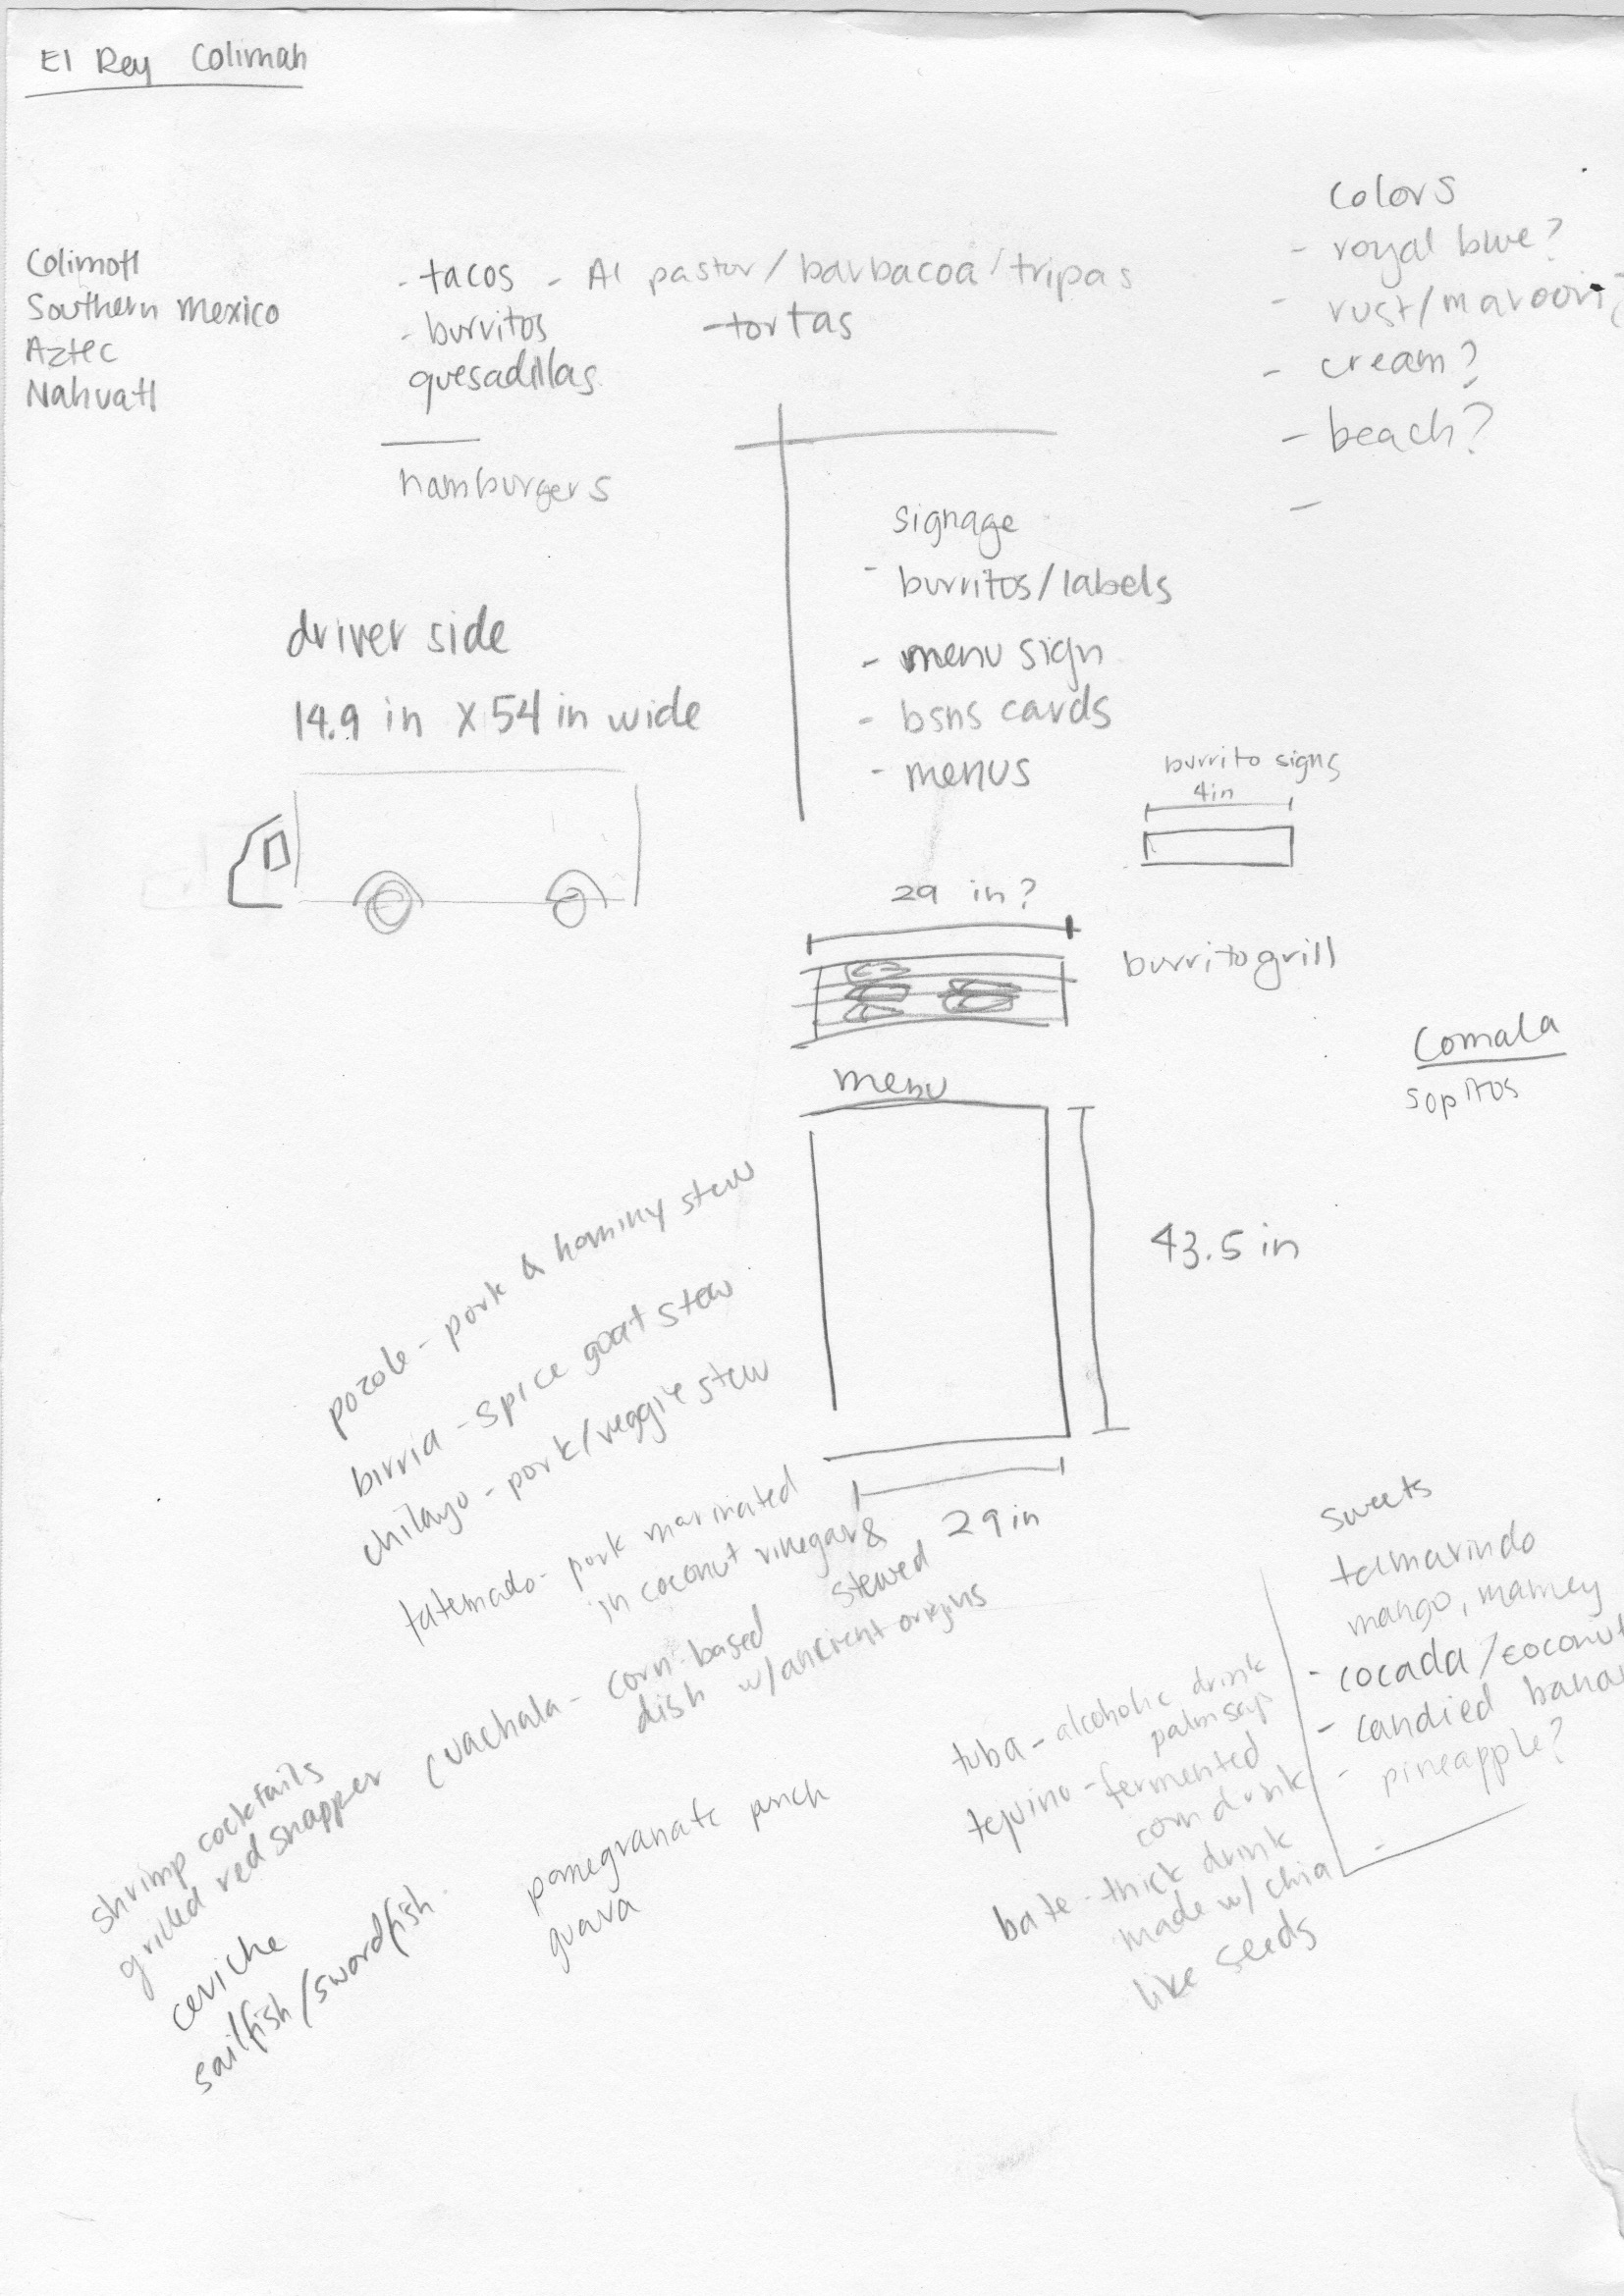 El Rey Colimah
Colimotl
Southern Mexico
Aztec
Nahuatl
- tacos - Al pastor/barbacoa/tripas
- burritos -tortas
quesadillas
hamburgers
colors
- royal blue?
- rust/maroon?
- cream?
- beach?
-
signage
- burritos/labels
- menu sign
- bsns cards
- menus
driver side
14.9 in X 54 in wide
burrito signs
4in
29 in?
burrito grill
Comala
sopitos
menu
43.5 in
29 in
pozole - pork & hominy stew
birria - spice goat stew
chilayo - pork/veggie stew
tatemado - pork marinated
in coconut vinegar &
stewed
cuachala - corn-based
dish w/ancient origins
shrimp cocktails
grilled red snapper
ceviche
sailfish/swordfish
pomegranate punch
guava
tuba - alcoholic drink
palm sap
tejuino - fermented
corn drink
bate - thick drink
made w/ chia
like seeds
sweets
tamarindo
mango, mamey
- cocada/coconut
- candied bana
- pineapple?
-